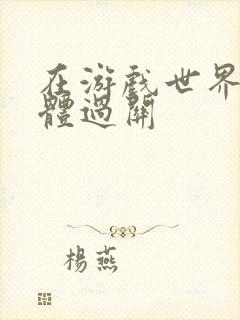 在游戏世界
體過關
楊燕